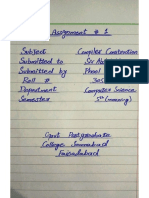 Assignment # 1
Subject Compiler Construction
Submitted to Sir Ab
Submitted by Phool
Roll # 305
Department Computer Science
Semester 5th (morning)
Govt Postgraduate
College Samanabad
Faisalabad